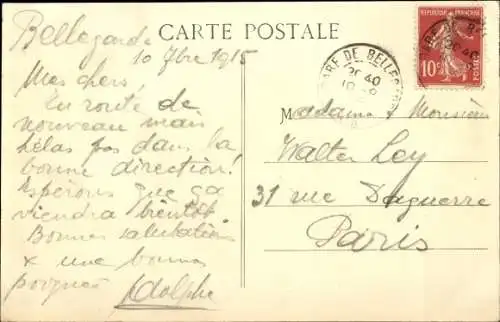 CARTE POSTALE
Bellegarde
10 7bre 1915
Mes chers,
En route de
nouveau mais
hélas pas dans la
bonne direction!
Espérons que ça
viendra bientôt
Bonnes salutations
& une bonne
poignée Adolphe
RÉPUBLIQUE FRANÇAISE
10c
POSTES
GARE DE BELLEG
20 40
Madame & Monsieur
Walter Ley
31 rue Daguerre
Paris